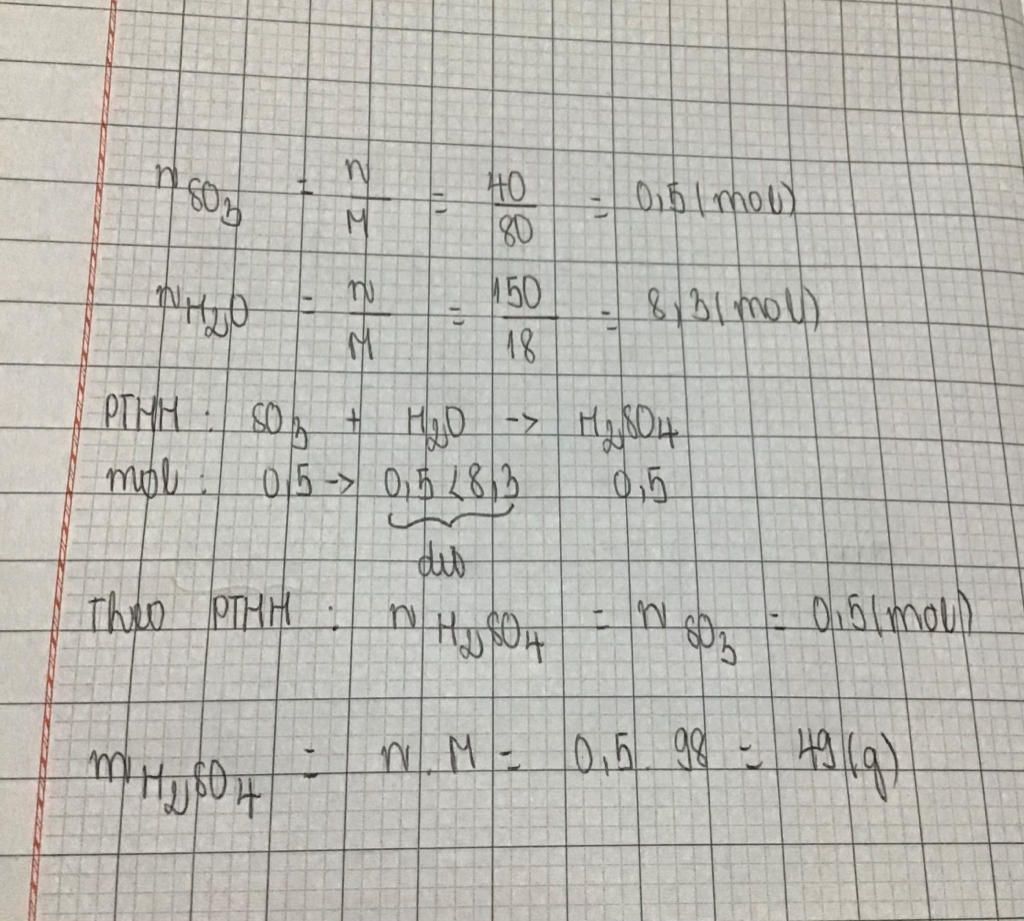 n SO3 = n/M = 40/80 = 0,5 (mol)
nH2O = n/M = 150/18 = 8,3 (mol)
PTHH : SO3 + H2O -> H2SO4
mol : 0,5 -> 0,5 < 8,3 0,5
dư
Theo PTHH : n H2SO4 = n SO3 = 0,5 (mol)
m H2SO4 = n . M = 0,5 . 98 = 49 (g)